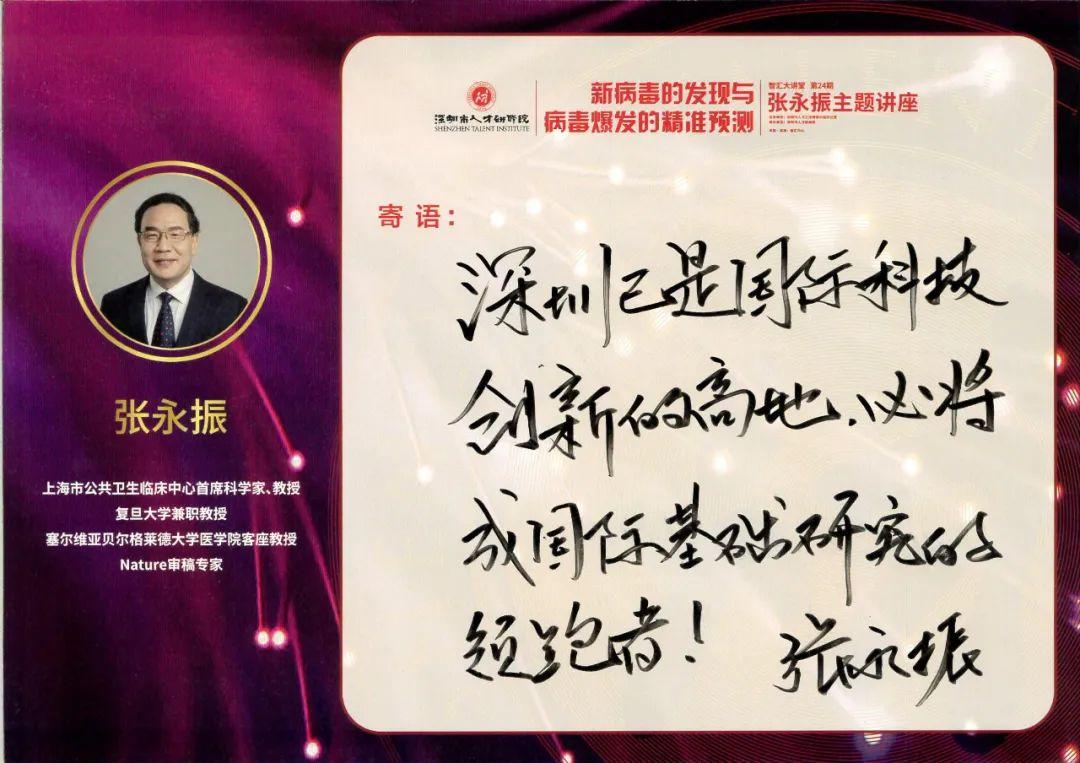 深圳市人才研修院
SHENZHEN TALENT INSTITUTE
新病毒的发现与
病毒爆发的精准预测
智汇大讲堂 第24期
张永振主题讲座
寄语：
深圳已是国际科技
创新的高地，必将
成国际基础研究的
领跑者！
张永振
张永振
上海市公共卫生临床中心首席科学家、教授
复旦大学兼职教授
塞尔维亚贝尔格莱德大学医学院客座教授
Nature审稿专家